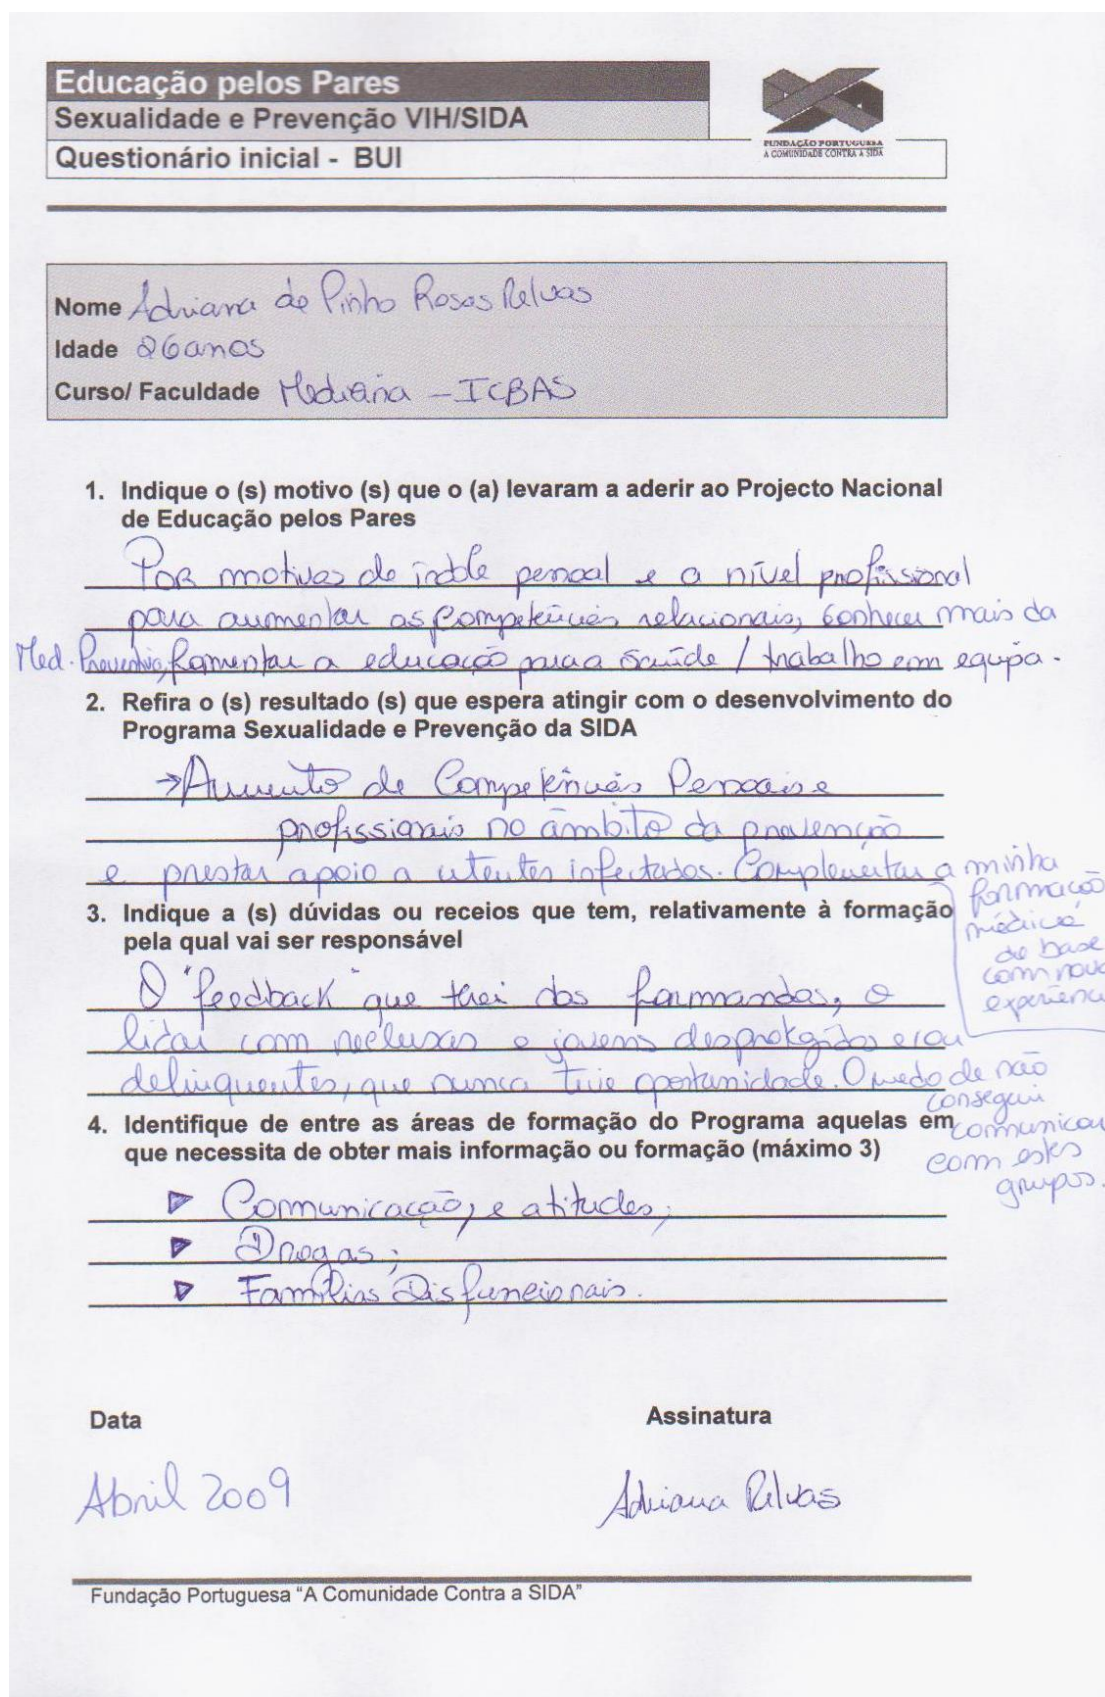 Educação pelos Pares
Sexualidade e Prevenção VIH/SIDA
Questionário inicial - BUI
FUNDAÇÃO PORTUGUESA
A COMUNIDADE CONTRA A SIDA
Nome Adriana de Pinho Rosas Relvas
Idade 26 anos
Curso/ Faculdade Medicina - ICBAS
1. Indique o (s) motivo (s) que o (a) levaram a aderir ao Projecto Nacional
de Educação pelos Pares
Por motivos de índole pessoal e a nível profissional
para aumentar as competências relacionais, conhecer mais da
Med. Preventiva, fomentar a educação para a saúde / trabalho em equipa.
2. Refira o (s) resultado (s) que espera atingir com o desenvolvimento do
Programa Sexualidade e Prevenção da SIDA
→ Aumento de Competências Pessoais e
profissionais no âmbito da prevenção
e prestar apoio a utentes infectados. Complementar a minha
formação
médica
de base
com nova
experiência
3. Indique a (s) dúvidas ou receios que tem, relativamente à formação
pela qual vai ser responsável
O "feedback" que terei dos formandos, o
lidar com reclusas e jovens desprotegidos e/ou
delinquentes, que nunca tive oportunidade. O medo de não
conseguir
comunicar
com estes
grupos.
4. Identifique de entre as áreas de formação do Programa aquelas em
que necessita de obter mais informação ou formação (máximo 3)
▶ Comunicação, e atitudes;
▶ Drogas;
▶ Famílias Disfuncionais.
Data
Assinatura
Abril 2009
Adriana Relvas
Fundação Portuguesa “A Comunidade Contra a SIDA”